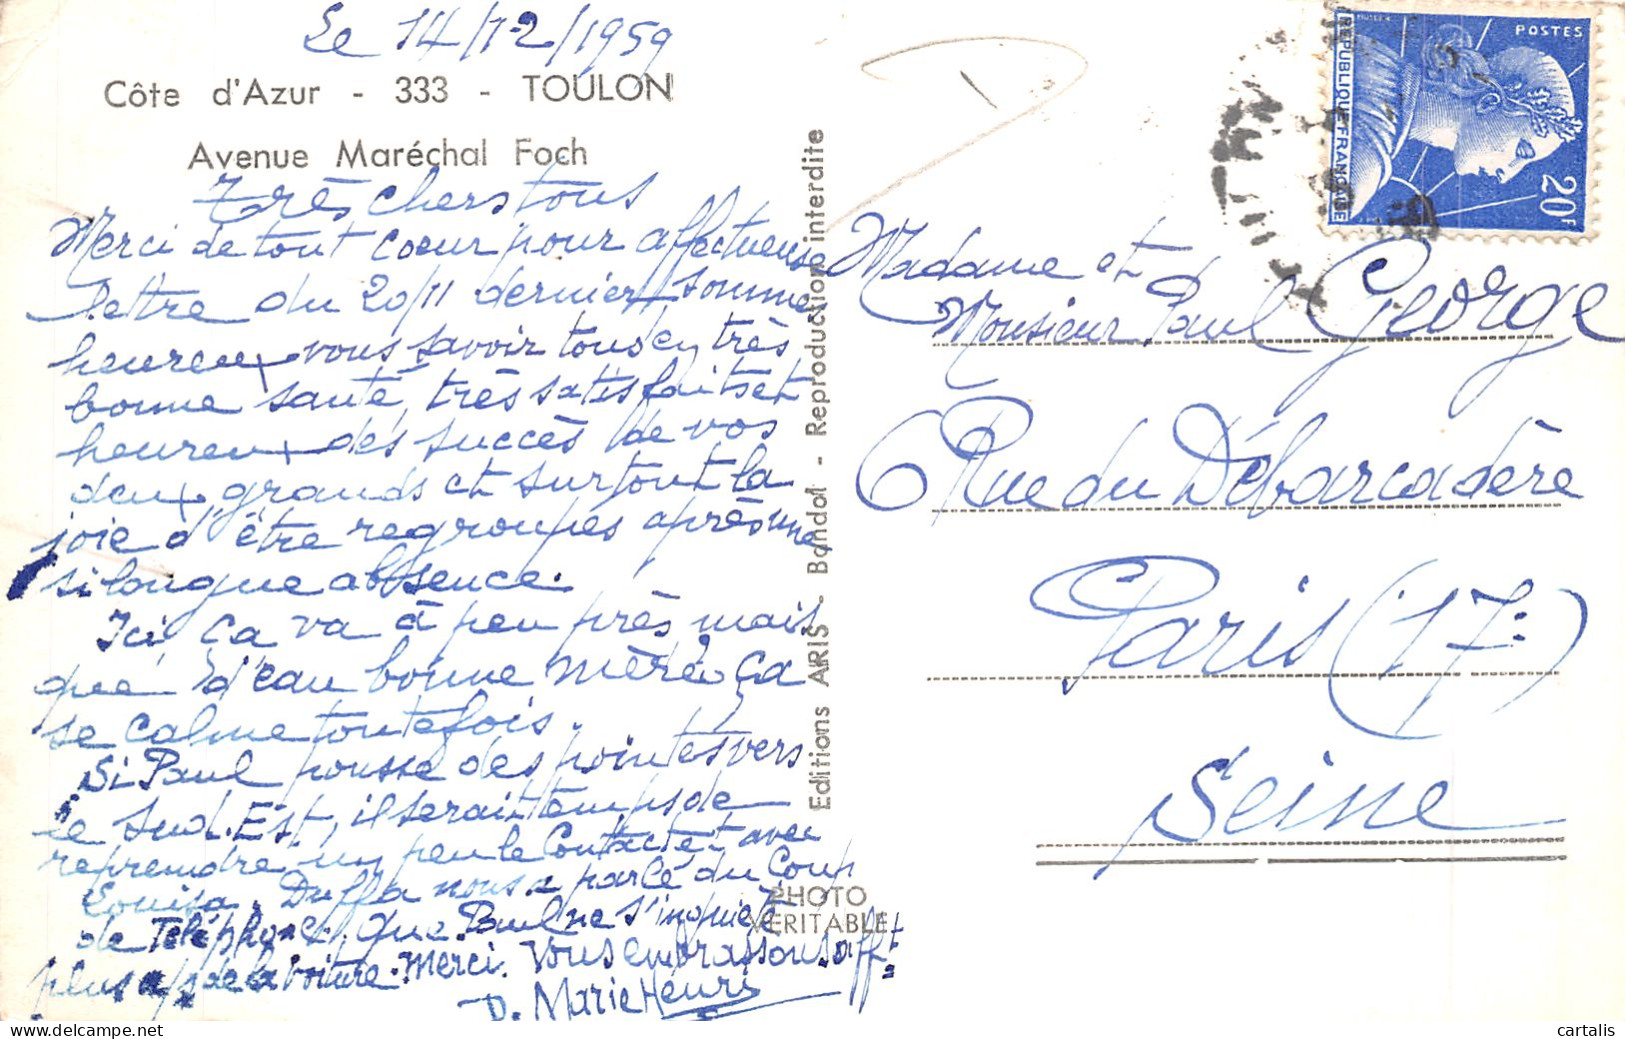 Le 14/12/1959
Côte d'Azur - 333 - TOULON
Avenue Maréchal Foch
Très chers tous
Merci de tout coeur pour affectueuse
lettre du 20/11 dernier sommes
heureux vous savoir tous en très
bonne santé, très satisfaits et
heureux des succès de vos
deux grands et surtout la
joie d'être regroupés après une
si longue absence.
Ici ça va à peu près mais
que d'eau bonne mère ça
se calme toutefois.
Si Paul pousse des pointes vers
le Sud.Est, il serait temps de
reprendre un peu le Contact et avec
Louisa. Duffa nous a parlé du Coup
de Téléphone. Que Paul ne s'inquiète
plus de la voiture. Merci. Vous embrassons aff.t
D. Marie Henri
Editions ARIS - Bandol - Reproduction interdite
PHOTO
VERITABLE
REPUBLIQUE FRANÇAISE
POSTES
20F
Madame et
Monsieur Paul George
6 Rue du Débarcadère
Paris (17e)
Seine
cartalis